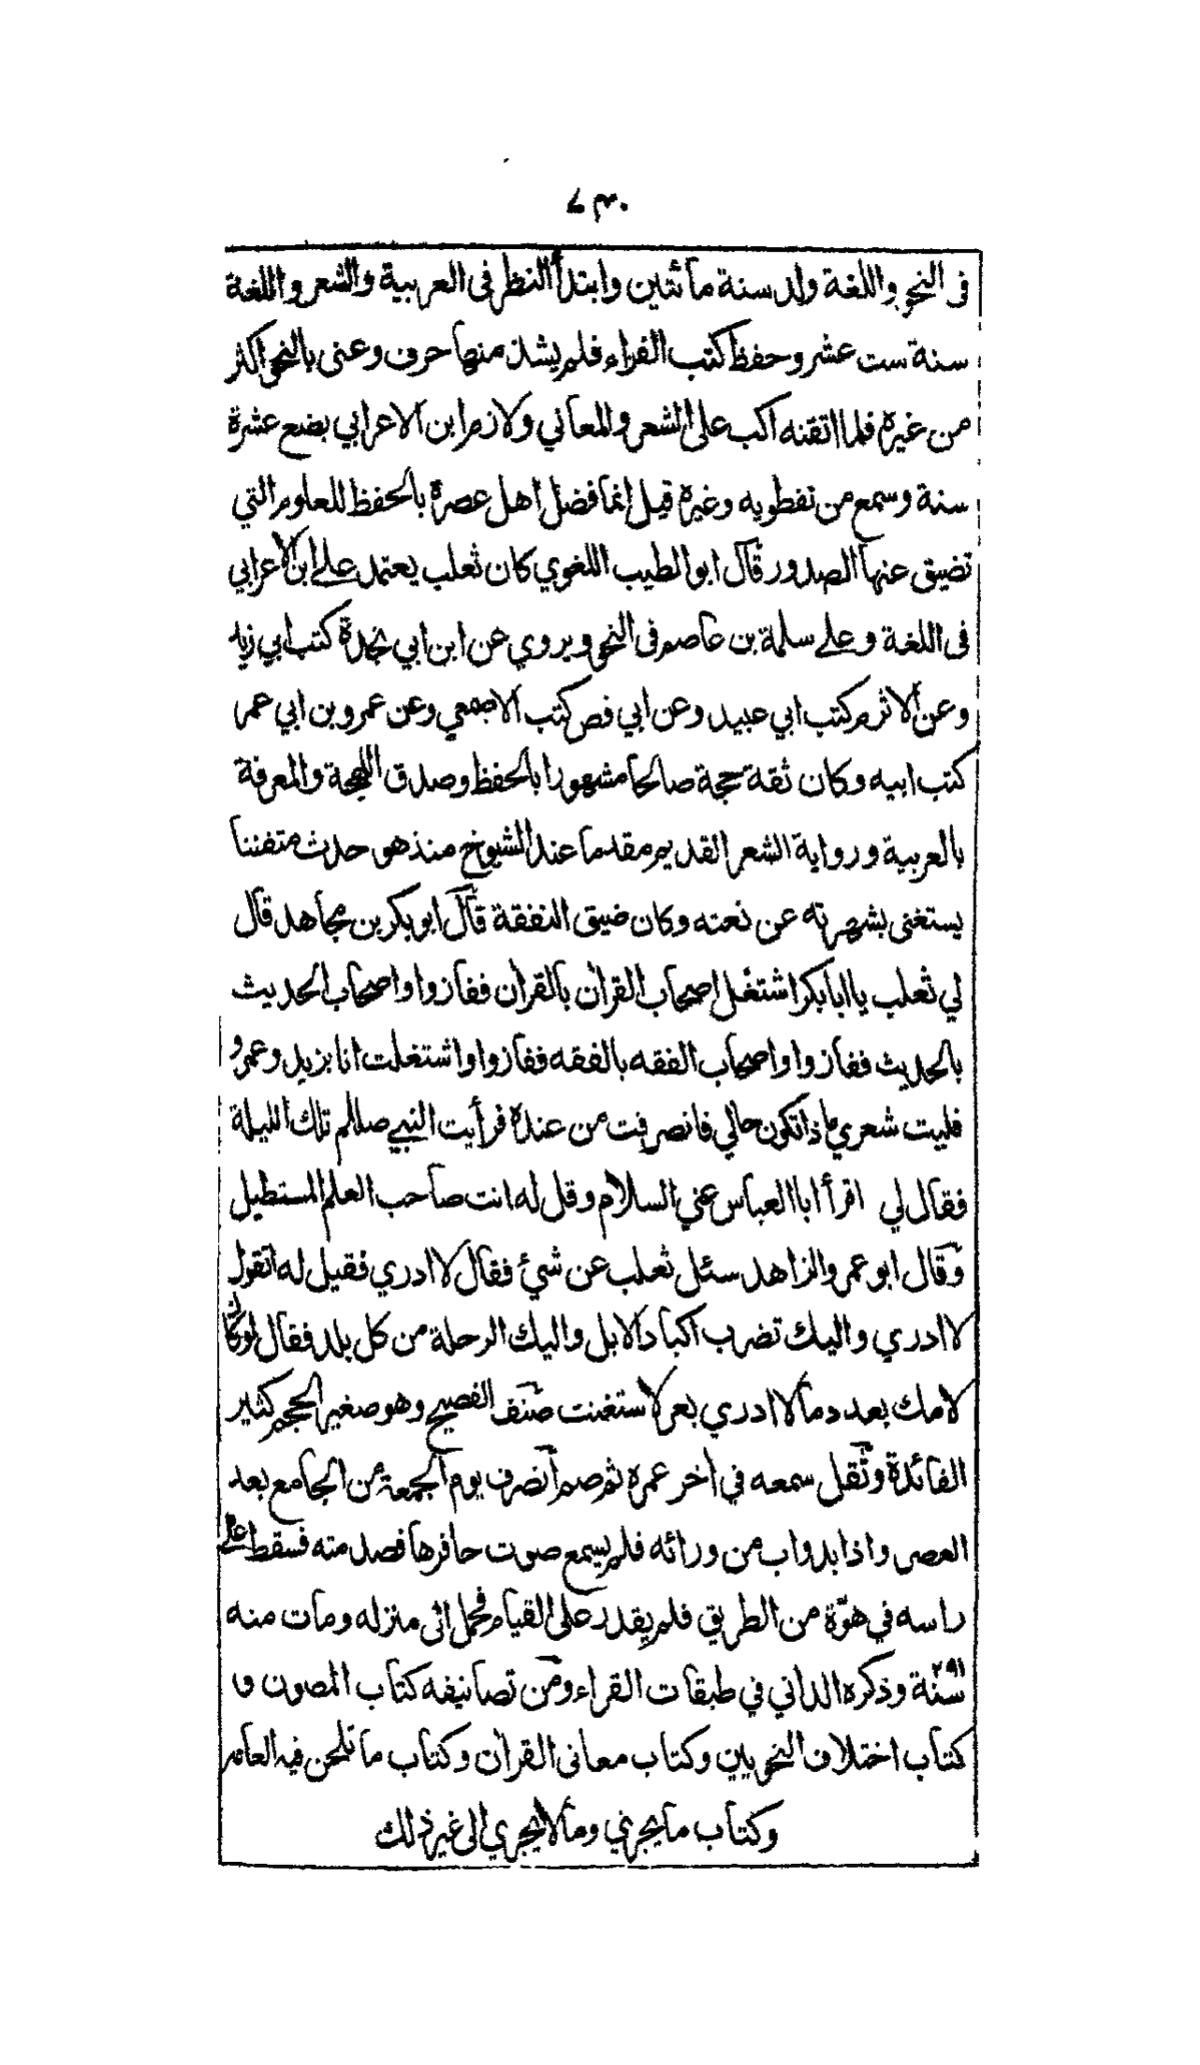 في النحو واللغة ولد سنة مائتين وابتدأ النظر في العربية والشعر واللغة
سنة ست عشر وحفظ كتب الفراء فلم يشذ منها حرف وعنى بالنحو اكثر
من غيره فلما اتقنه اكب على الشعر والمعاني ولازم ابن الاعرابي بضع عشرة
سنة وسمع من نفطويه وغيره قيل انما فضل اهل عصره بالحفظ للعلوم التي
تضيق عنها الصدور قال ابو الطيب اللغوي كان ثعلب يعتمد على ابن الاعرابي
في اللغة وعلى سلمة بن عاصم في النحو ويروي عن ابن ابي نجدة كتب ابي زيد
وعن الاثرم كتب ابي عبيد وعن ابي فص كتب الاصمعي وعن عمرو بن ابي عمر
كتب ابيه وكان ثقة حجة صالحا مشهورا بالحفظ وصدق اللهجة والمعرفة
بالعربية ورواية الشعر القديم مقدما عند الشيوخ منذ هو حدث متفننا
يستغنى بشهرته عن نعته وكان ضيق النفقة قال ابو بكر بن مجاهد قال
لي ثعلب يا ابا بكر اشتغل اصحاب القران بالقران ففازوا واصحاب الحديث
بالحديث ففازوا واصحاب الفقه بالفقه ففازوا واشتغلت انا بزيد وعمرو
فليت شعري ماذا تكون حالي فانصرفت من عنده فرأيت النبي صللم تلك الليلة
فقال لي اقرأ ابا العباس عني السلام وقل له انت صاحب العلم المستطيل
وقال ابو عمر والزاهد سئل ثعلب عن شئ فقال لا ادري فقيل له اتقول
لا ادري واليك تضرب اكباد الابل واليك الرحلة من كل بلد فقال لو كان
لامك بعدد ما لا ادري بعر لاستغنت صنف الفصيح وهو صغير الحجم كثير
الفائدة وثقل سمعه في اخر عمره ثم صم انصرف يوم الجمعة من الجامع بعد
العصر واذا بدواب من ورائه فلم يسمع صوت حافرها فصدمته فسقط على
راسه في هوّة من الطريق فلم يقدر على القيام فحمل الى منزله ومات منه
سنة ٢٩١ وذكره الداني في طبقات القراء ومن تصانيفه كتاب المصون و
كتاب اختلاف النحويين وكتاب معانى القران وكتاب ما تلحن فيه العامه
وكتاب ما يجري وما لا يجري الى غير ذلك